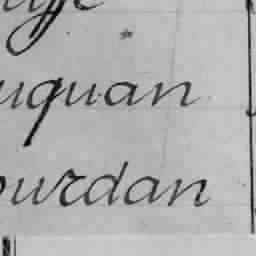 uquan
ourdan